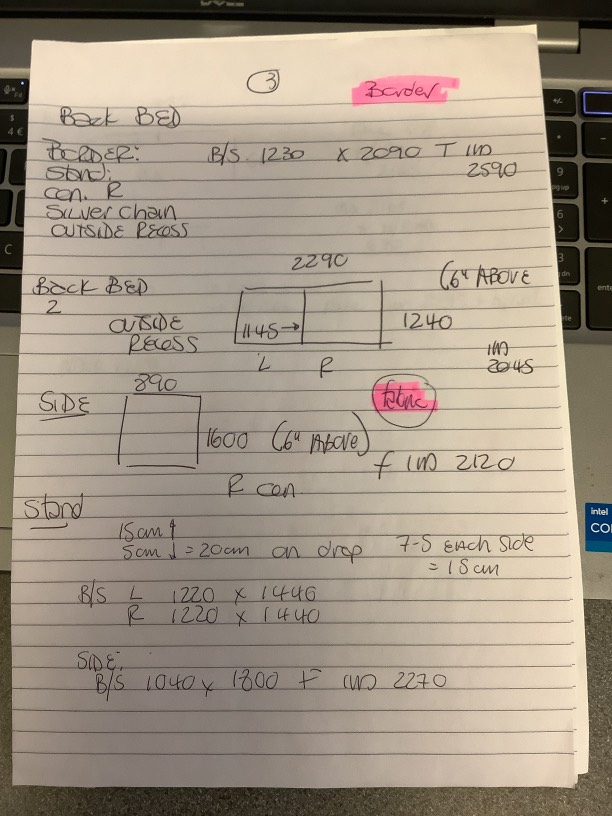 3
Border
Back BED
BORDER: B/S 1230 X 2090 T IW
2590
Stand:
con. R
Silver chain
OUTSIDE RECESS
2290
Back BED
2
(6" ABOVE
OUTSIDE
RECESS
1145→
1240
L R
IW
2045
890
SIDE
fabric
1600 (6" Above)
f IW 2120
R con
Stand
15cm ↑
5cm ↓ = 20cm on drop 7-5 EACH Side
= 15cm
B/S L 1220 x 1440
R 1220 x 1440
SIDE:
B/S 1040 x 1800 F IW 2270
intel